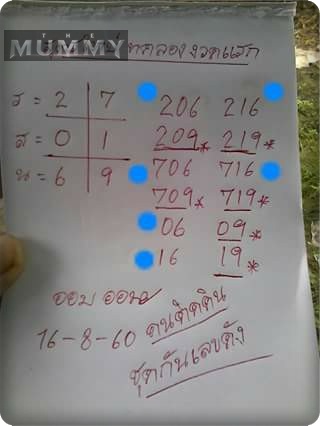 THE
MUMMY
ทดลองงวดแรก
ร = 2 7
206 216
ส = 0 1
209* 219*
706 716
น = 6 9
709* 719*
06 09*
16 19*
ออม ออม
16-8-60 คนติดดิน
ชุดกันเลขดัง